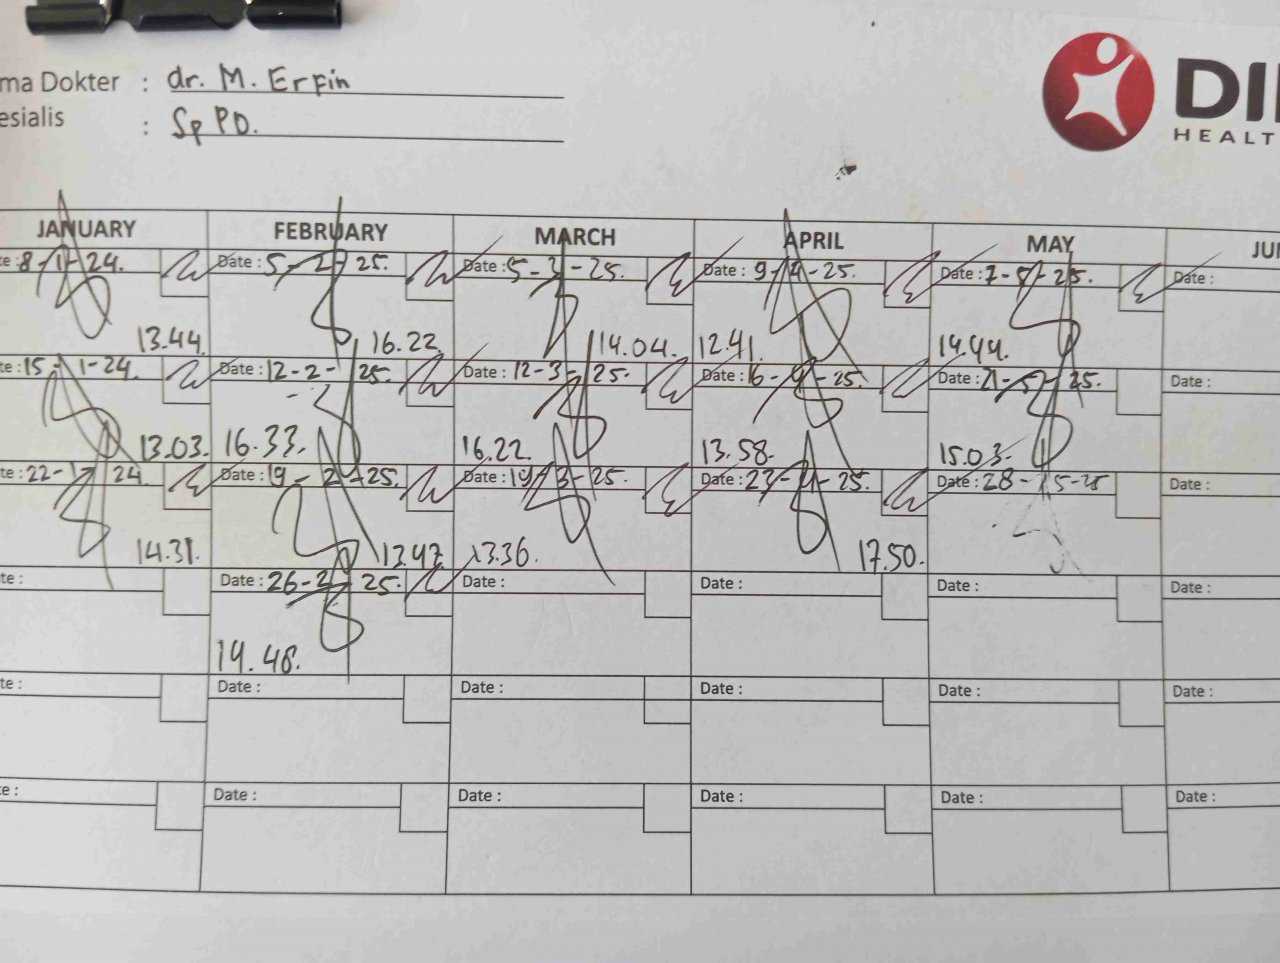 ma Dokter : dr. M. Erfin
esialis : Sp PD.
DI
HEALT
JANUARY FEBRUARY MARCH APRIL MAY JU
te : 8-1-24. Date : 5-2-25. Date : 5-3-25. Date : 9-4-25. Date : 7-5-25. Date :
13.44. 16.22 14.04. 12.41. 14.44.
te : 15-1-24. Date : 12-2-25. Date : 12-3-25. Date : 16-4-25. Date : 21-5-25. Date :
13.03. 16.33. 16.22. 13.58. 15.03.
te : 22-1-24. Date : 19-2-25. Date : 19-3-25. Date : 23-4-25. Date : 28-5-25 Date :
14.31. 13.47 13.36. 17.50.
te : Date : 26-2-25. Date : Date : Date : Date :
14.48.
te : Date : Date : Date : Date : Date :
e : Date : Date : Date : Date : Date :